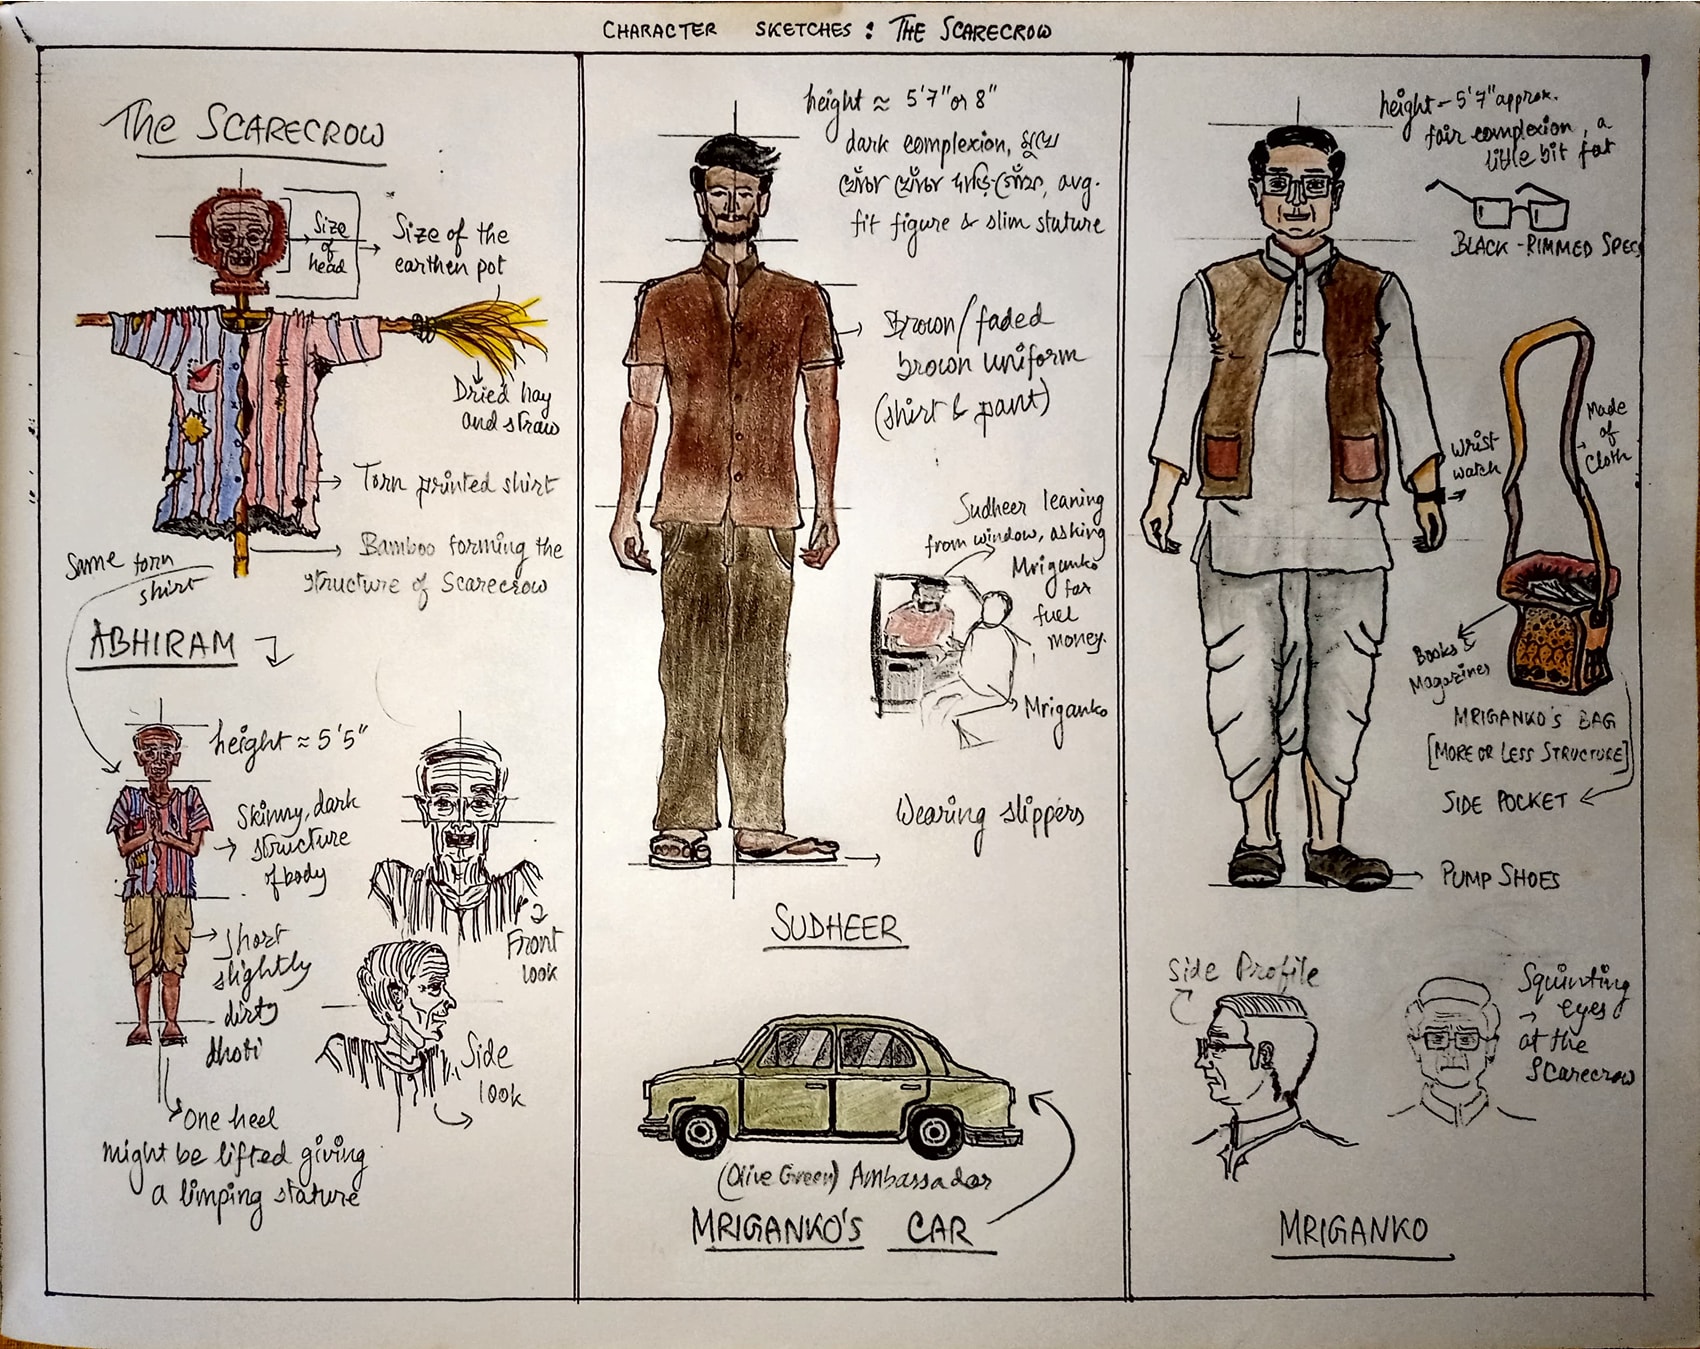 CHARACTER SKETCHES: THE SCARECROW
The SCARECROW
Size
of
head
Size of the
earthen pot
Dried hay
and straw
Torn printed shirt
Bamboo forming the
structure of Scarecrow
Same torn
shirt
ABHIRAM
height ≈ 5'5"
Skinny, dark
structure
of body
short
slightly
dirty
dhoti
One heel
might be lifted giving
a limping stature
Front
look
Side
look
height ≈ 5'7" or 8"
dark complexion, মুখে
খোঁচা খোঁচা দাড়ি-গোঁফ, avg.
fit figure & slim stature
Brown/faded
brown uniform
(shirt & pant)
Sudheer leaning
from window, asking
Mriganko
for
fuel
money.
Mriganko
Wearing slippers
SUDHEER
(Olive Green) Ambassador
MRIGANKO'S CAR
height - 5'7" approx.
fair complexion, a
little bit fat
BLACK-RIMMED SPECS
Wrist
watch
Made
of
Cloth
Books &
Magazines
MRIGANKO'S BAG
[MORE OR LESS STRUCTURE]
SIDE POCKET
PUMP SHOES
Side Profile
Squinting
eyes
at the
Scarecrow
MRIGANKO